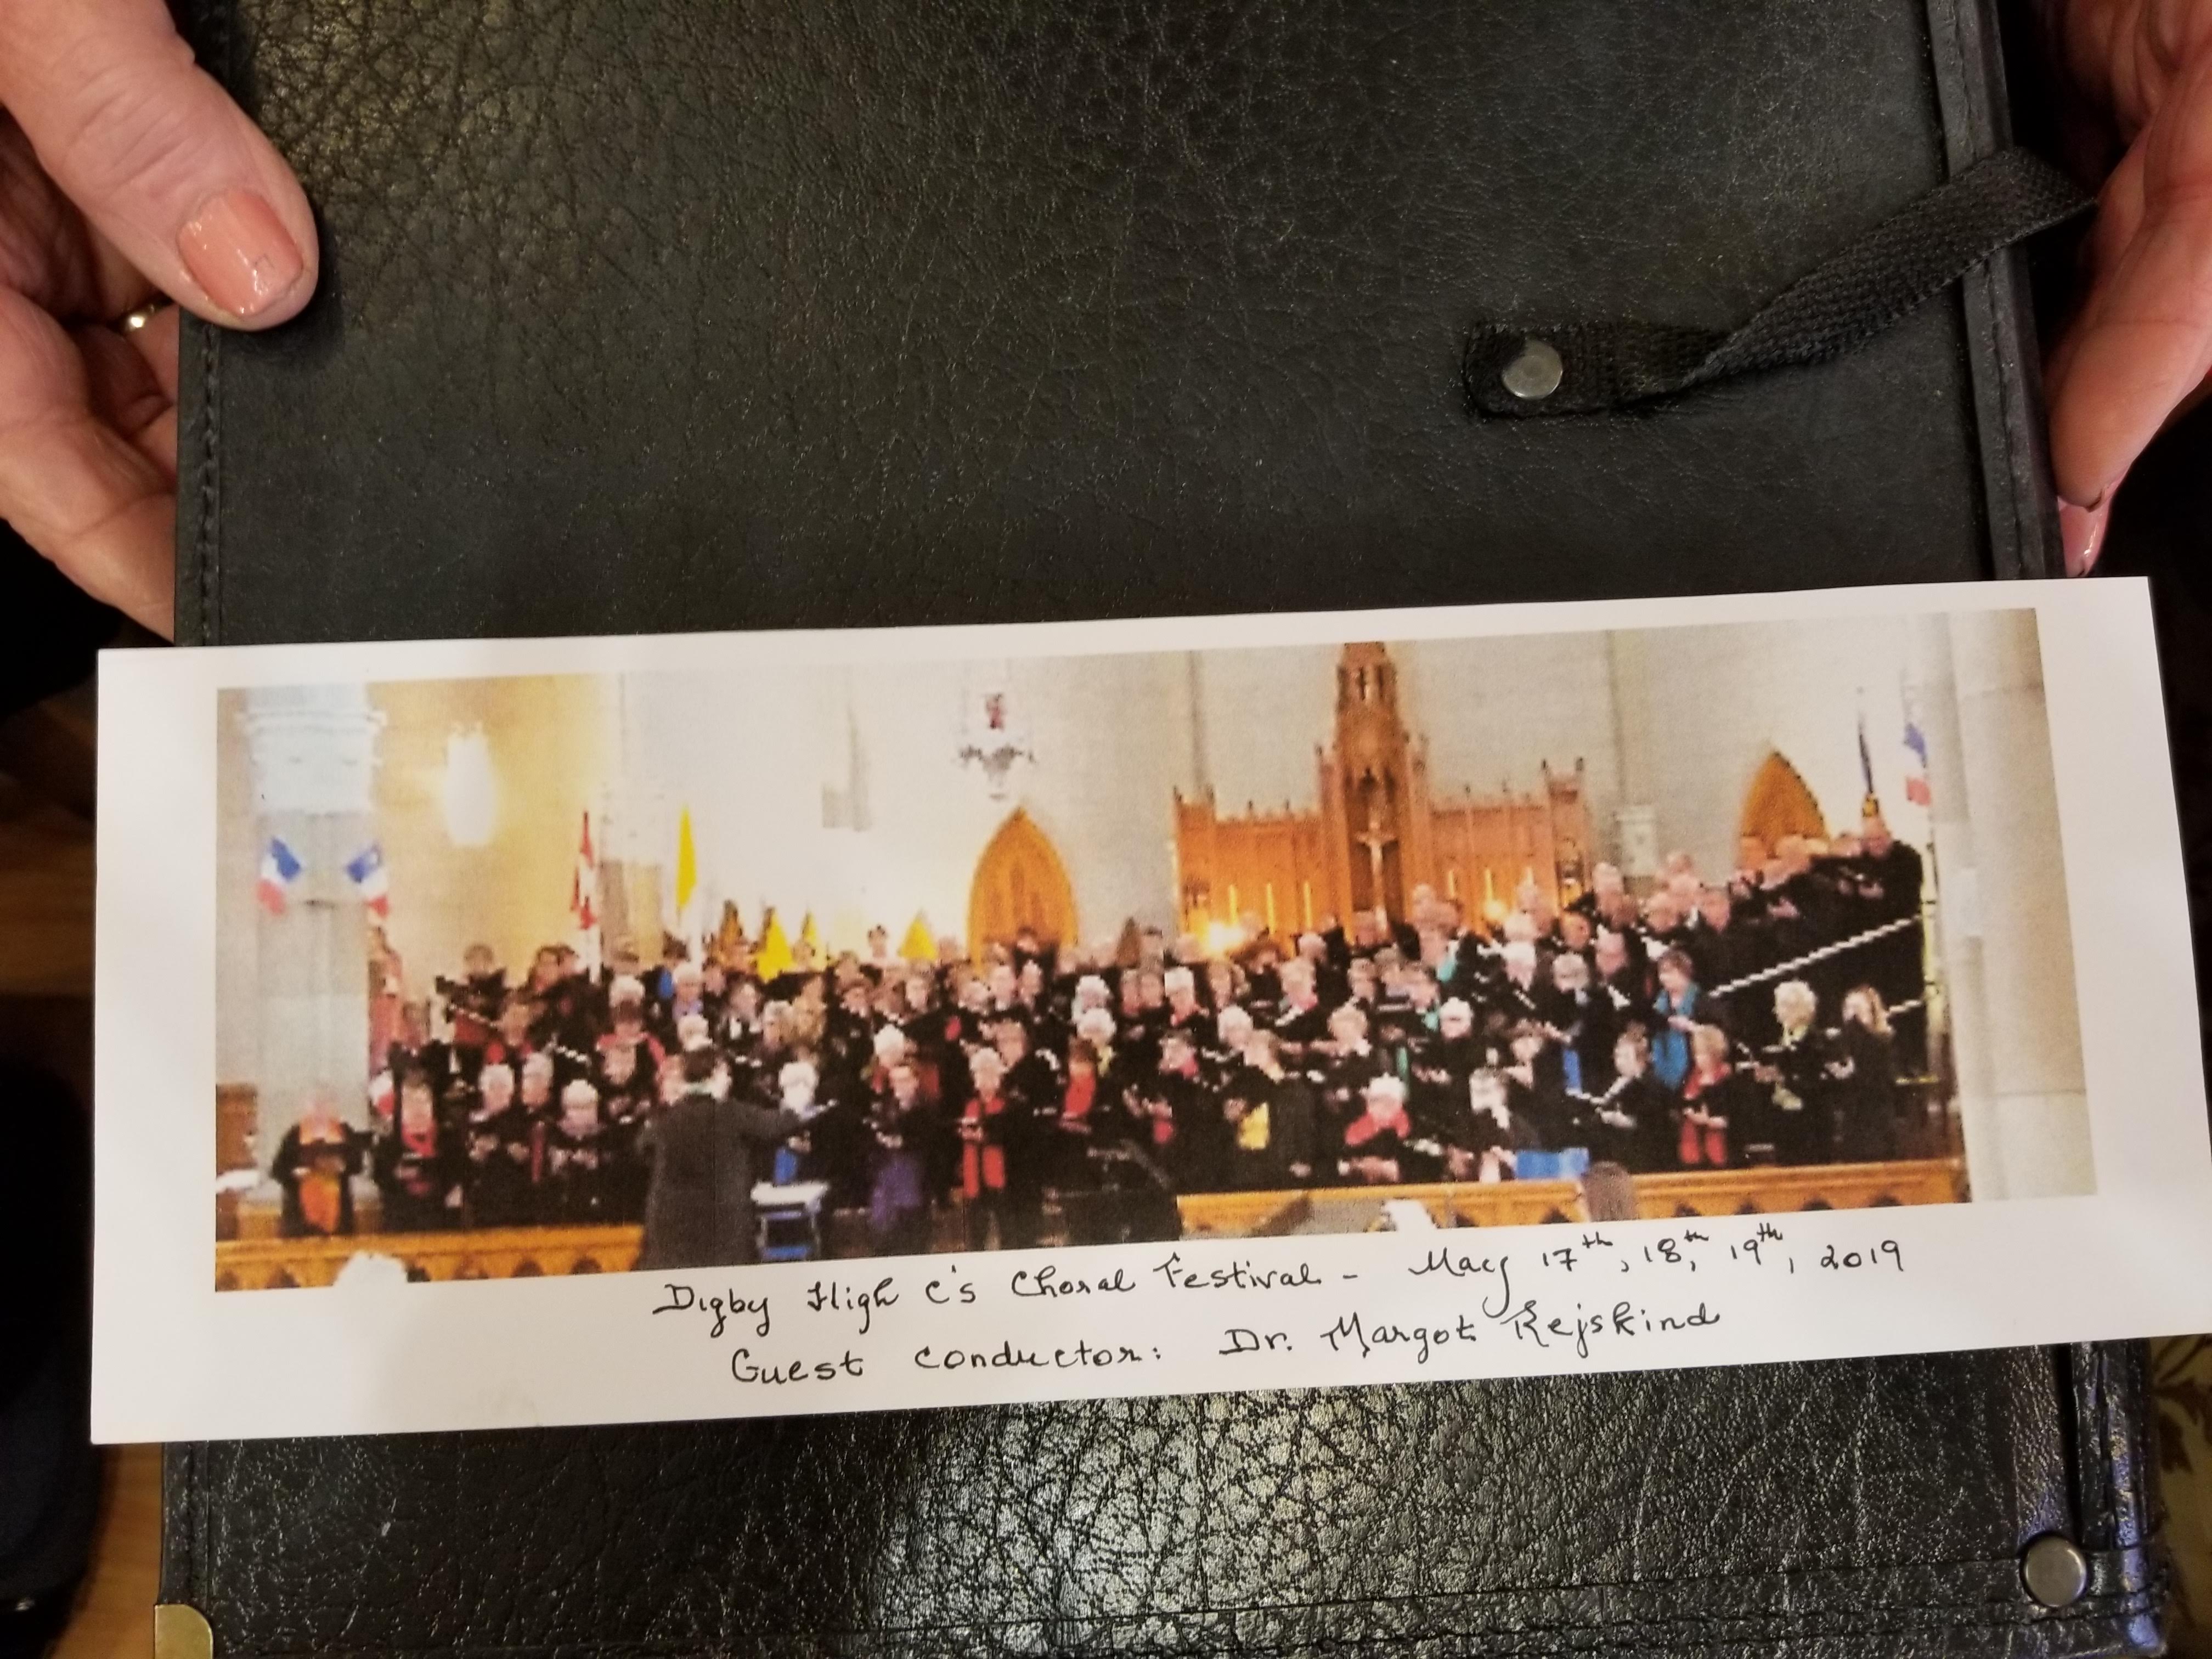 Digby High C's Choral Festival - May 17th, 18th, 19th, 2019
Guest Conductor: Dr. Margot Rejskind